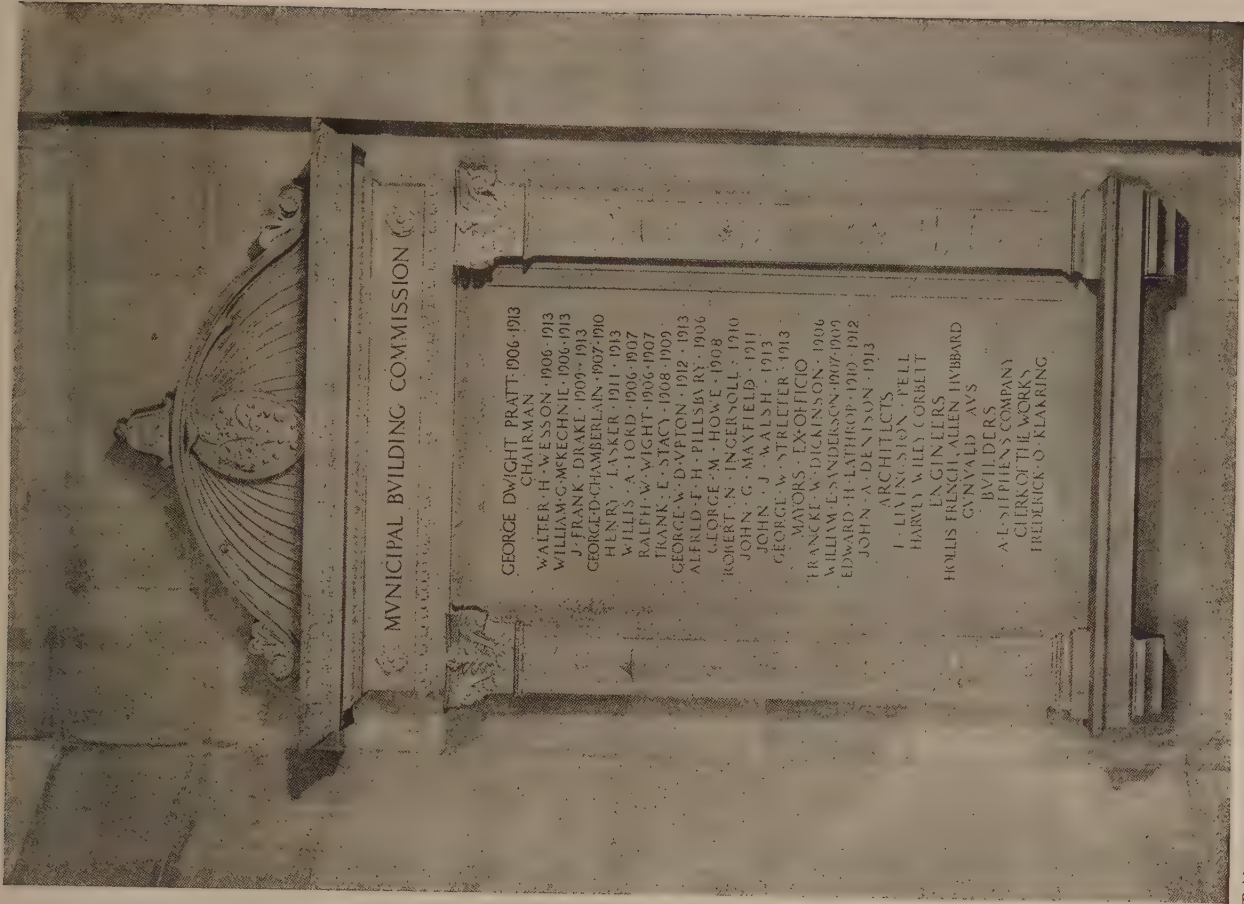 MVNICIPAL BVILDING COMMISSION
GEORGE DWIGHT PRATT·1906·1913
CHAIRMAN
WALTER·H·WESSON·1906·1913
WILLIAM·G·MCKECHNIE·1906·1913
J·FRANK DRAKE·1909·1913
GEORGE·D·CHAMBERLAIN·1907·1910
HENRY·LASKER·1911·1913
WILLIS·A·LORD·1906·1907
RALPH·W·WIGHT·1906·1907
FRANK·E·STACY·1908·1909
GEORGE·W·D·VPTON·1912·1913
ALFRED·E·H·PILLSBVRY·1906
GEORGE·M·HOWE·1908
ROBERT·N·INGERSOLL·1910
JOHN·G·MAXFIELD·1911
JOHN·J·WALSH·1913
GEORGE·W·STREETER·1913
MAYORS·EX·OFFICIO
FRANCKE·W·DICKINSON·1906
WILLIAM·E·SANDERSON·1907·1909
EDWARD·H·LATHROP·1910·1912
JOHN·A·DENISON·1913
ARCHITECTS
F·LIVINGSTON·PELL
HARVEY WILEY CORBETT
ENGINEERS
HOLLIS FRENCH, ALLEN HVBBARD
GVNVALD AVS
BVILDERS
A·E·STEPHENS COMPANY
CLERK OF THE WORKS
FREDERICK·O·KLAKRING